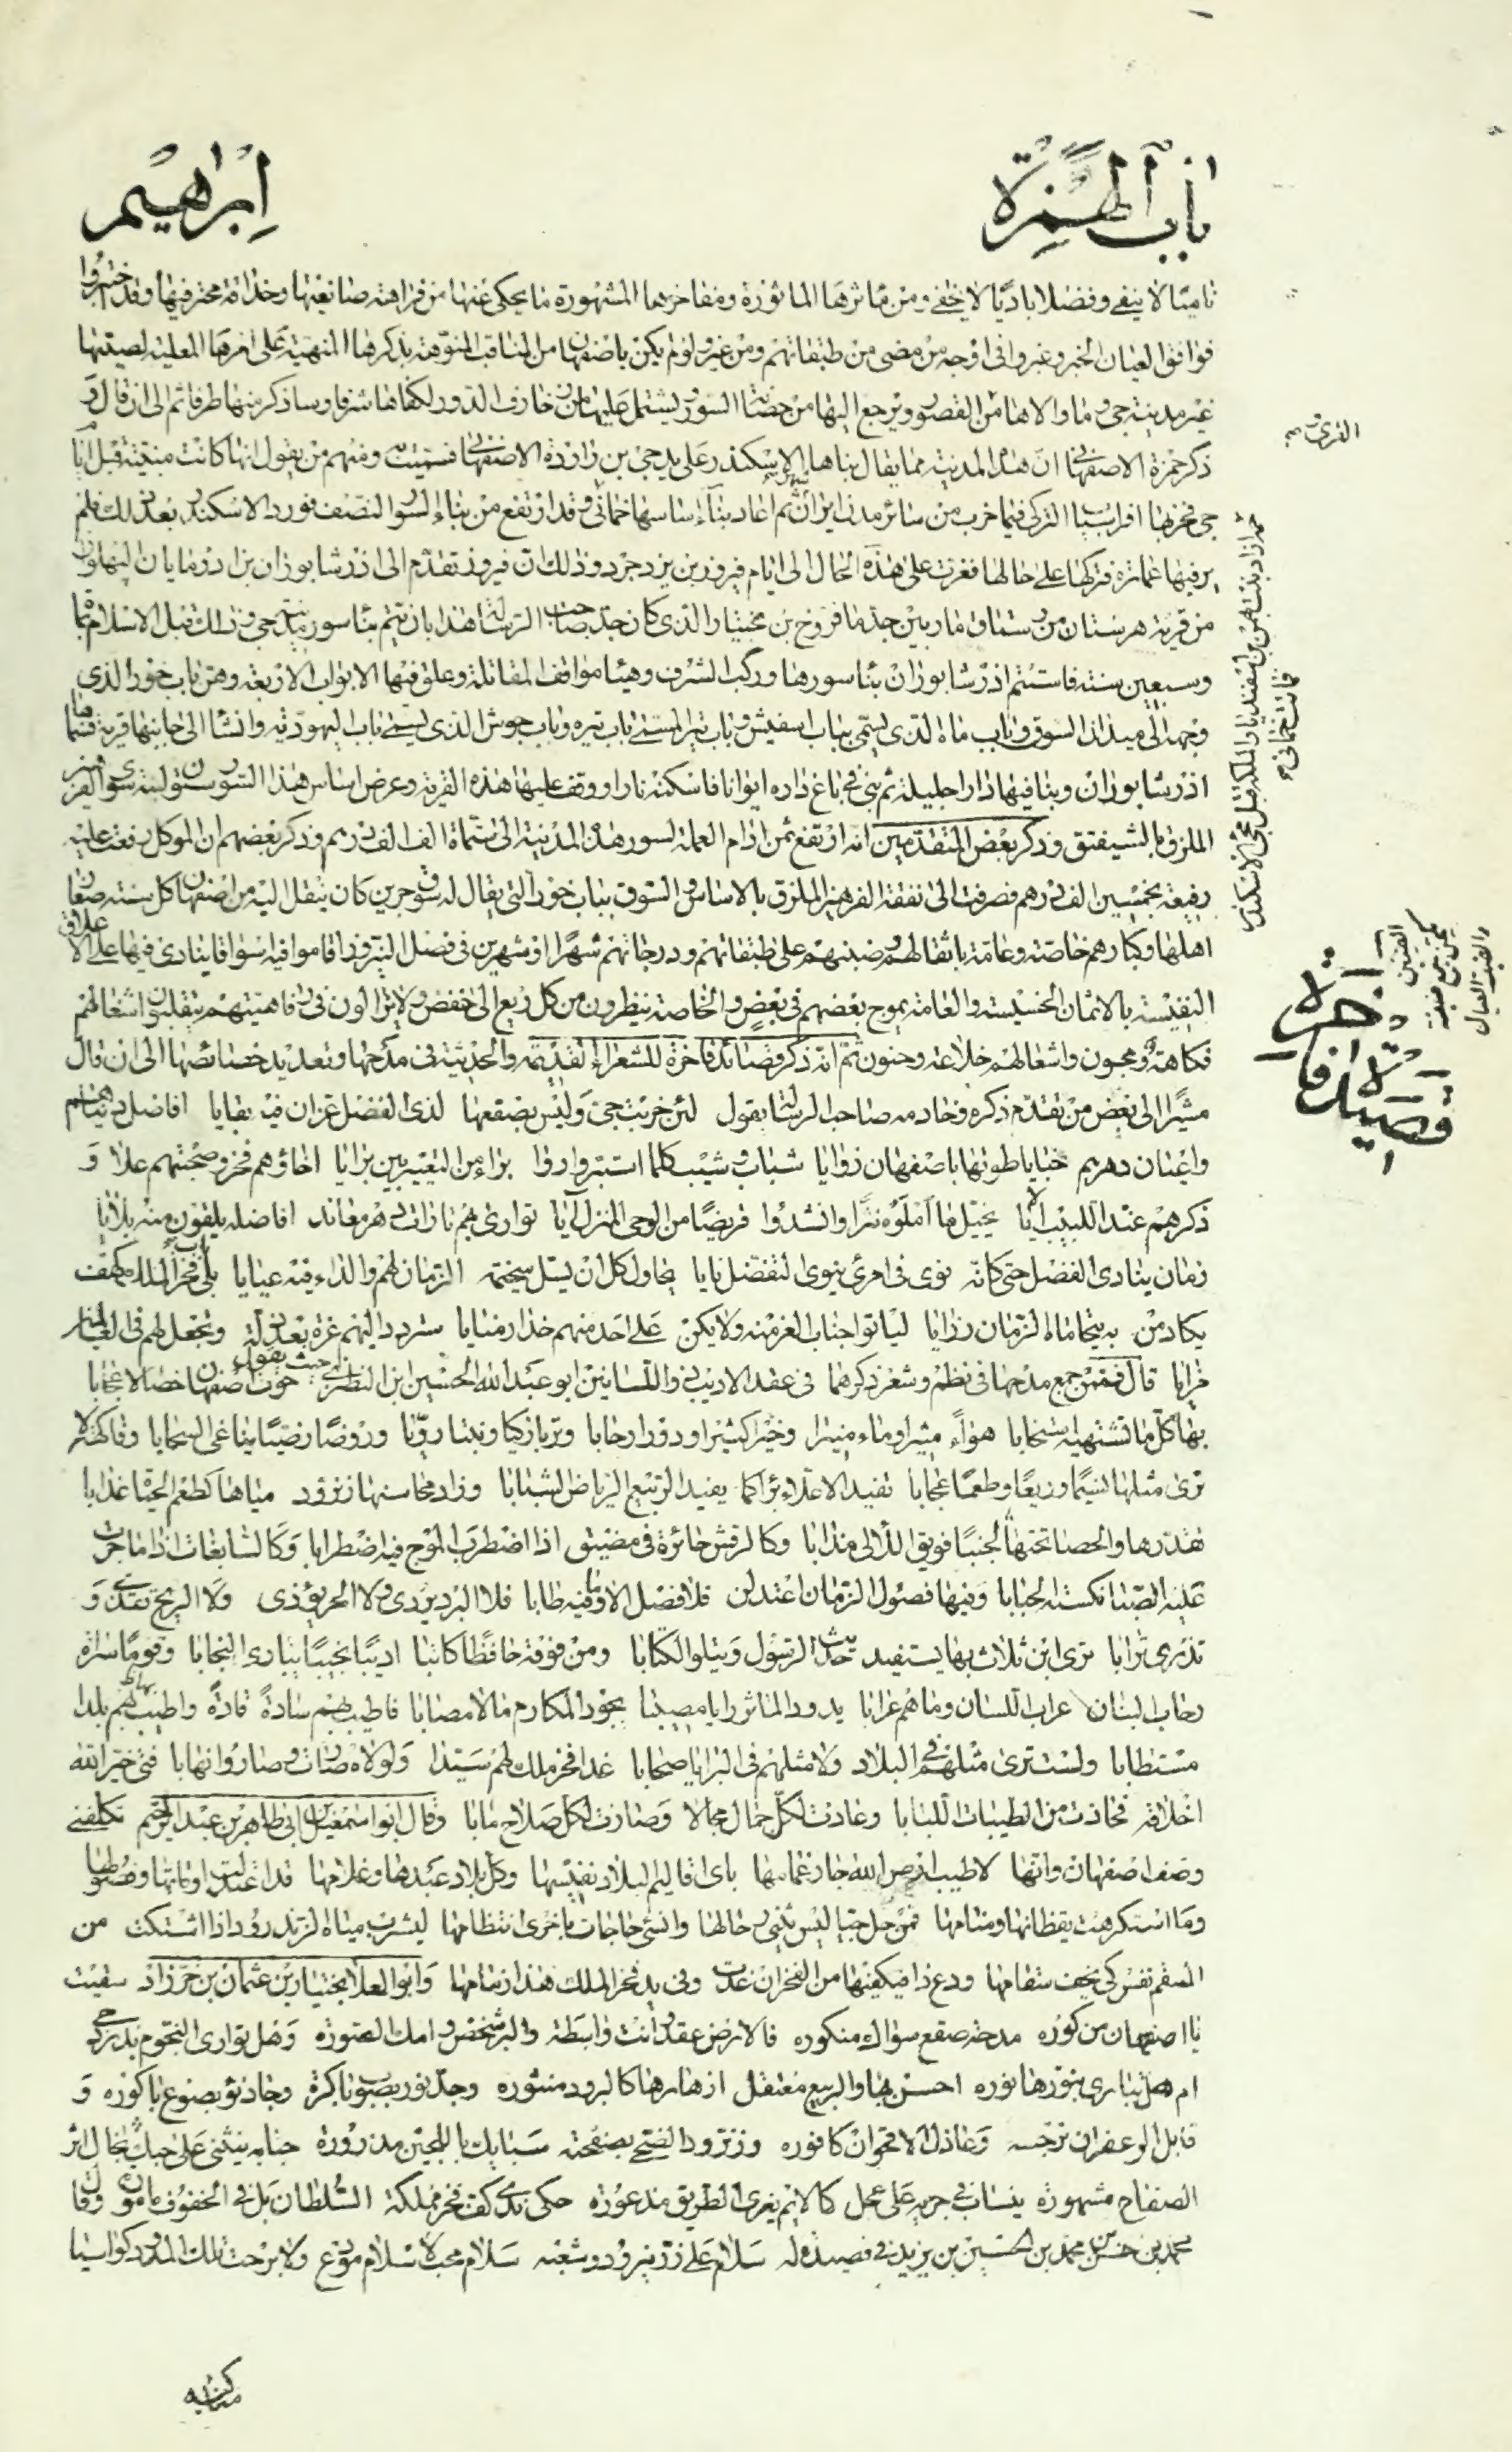 باب الهمزة
ابراهيم
ناميا لا ينفي وفضلا باديا لا يخفي ومن مآثرها الماثورة ومفاخرها المشهورة ما يحكى عنها من فراهة صانعيها وحذاقة محترفيها وقد اختبروا
فوافق العيان الخبر وغبروا في اوجه من مضى من طبقاتهم ومن غبر ولو لم يكن باصفهان من المناقب المنوهة بذكرها المنهية على امرها المعلية لصيتها
غير مدينة جي وما والاها من القصور ويرجع اليها من السور يشتمل عليها من زخارف الدور لكفاها شرفا وساذكر منها طرفا ثم الى ان قال و
القرى
ذكر حمزة الاصفهاني ان هذه المدينة مما يقال بناها الاسكندر على يد جي بن زاردة الاصفهاني فسميت به ومنهم من يقول انها كانت مبنية قبل ايام
جي فخربها افراسياب التركي فيما خرب من سائر مدن ايران ثم اعاد بناء اساسها خماني وقد ارتفع من بناء السور النصف فورد الاسكندر بعد ذلك فلم
ير فيها عمارة فتركها على حالها فغبرت على هذه الحال الى ايام فيروز بن يزدجرد وذلك ان فيروز تقدم الى اذرشابوران بن اذرمانان
من قرية هرستان من رستاق ماربين جد مافروخ بن بختيار الذي كان جد صاحب الرسالة هذا بان يتم بناء سور مدينة جي وذلك قبل الاسلام بمائة
وسبعين سنة فاستتم اذرشابوران بناء سورها وركب الشرف وهيئا مواقف المقاتلة وعلق فيها الابواب الاربعة وهي باب خور الذي
وجهه الى ميدان السوق وباب ماه الذي يسمى بباب اسفيش وباب تير المسمى باب تيره وباب جوش الذي يسمى باب اليهودية وانشا الى جانبها قرية فسماها
اذرشابوران وبنا فيها دارا جليلة ثم بنى في باغ داره ايوانا فاسكنه نارا ووقف عليها هذه القرية وعرض اساس هذا السور ستون لبنة سوى
الملزق بالشيفتق وذكر بعض المتقدمين انه ارتفع ثمن ادام العملة لسور هذه المدينة الى ستمائة الف الف درهم وذكر بعضهم ان الموكل رفعت عليه
رفيعة بخمسين الف درهم فصرفت الى نفقة الملزق بالاساس والسوق بباب خور التي يقال له سوق جرين كان ينتقل اليه من اصفهان كل سنة صغار
اهلها وكبارهم خاصة وعامة باثقالهم وضبنهم على طبقاتهم ودرجاتهم شهرا او شهرين في فصل النيروز اقاموا فيه اسواقا ينادى فيها على الاعلاق
النفيسة بالاثمان الخسيسة والعامة يموج بعضهم في بعض والخاصة ينظرون من كل ربع الى خفض ولا يزالون في رفاهيتهم يتقلبون اشغالهم
فكاهة ومجون واشغالهم خلاعة وجنون ثم انه ذكر قصائد فاخرة للشعراء القديمة والحديثة في مدحها وتعديد خصائصها الى ان قال
مشيرا الى بعض من تقدم ذكره وخادمه صاحب الرسالة يقول لئن خربت جي وليس بصقعها لذي الفضل عن ان فيه بقايا افاضل دنياهم
واعيان دهرهم خبايا طوتها باصفهان زوايا شباب وشيب كلما استبروا روا براء من التغيير بين برايا اخاؤهم فخر وصحبتهم علا و
ذكرهم عند اللبيب الايا يخيل ما املوه نثرا وانشدوا قريضا من الوحي المنزل آيا توارى بهم نازات دهر معاند افاضله يلقون منه بلايا
زمان ينادى الفضل حتى كانه نوى في امرئ ينوى لتفضل نايا يحاول كل ان يسل سخيمة الزمان لهم والداء فيه عيايا بلى فخر الملك كهف
يكاد من به يتحاماه الزمان رزايا ليانوا جناب العز منه ولا يكن على احد منهم حذار منايا سترد اليهم عزة بعد ذلة وتجعل لهم في
مزايا قال فمن جمع مدحها في نظم وشعر ذكرهما في عقد الادبين واللسانين ابو عبد الله الحسين ابن النطنزي حيث يقول حوت اصفهان خصالا عجابا
بها كل ما تشتهيه استجابا هواء منيرا وماء نميرا وخيرا كثيرا ودورا رحابا وتربا زكيا ونبتا رويا وروضا رضيا يناغي السحابا وفاكهة لا
ترى مثلها نسيما وريعا وطعما عجابا تفيد الاعلاء برا كما يفيد الربيع الرياض الشبابا وزاد محاسنها زنرود مياها كطعم الحيا عذابا
تقدرها والحصا تحتها لجينا فويق اللآلي مذابا وكالرقش حائرة في مضيق اذا اضطرب الموج فيه اضطرابا وكالسابغات اذا ما جرت
عليه الصبا نكسته الحبابا وفيها فصول الزمان اعتدلن فلا فصل الا وفيه طابا فلا البرد يردي ولا الحر يؤذي ولا الريح تقذي و
تذري ترابا ترى ابن ثلاث بها يستفيد حديث الرسول ويتلو الكتابا ومن فوقه حافظا كاتبا اديبا نجيبا يباري النجابا وقوما سراة
رحاب البنان عراب اللسان وما هم عرابا يدور المآثر رايا مصيبا بحور المكارم مالا مصابا فاطيب بهم سادة قادة واطيب بها بلدا
مستطابا ولست ترى مثلهم في البلاد ولا مثلهم في البرايا صحابا غدا فخر ملك لهم سيدا ولولاه ضاعت وصاروا نهابا فتى خير الله
اخلاقه فحازت من الطيبات اللبابا وعادت لكل جمال مجالا وصارت لكل صلاح مابا وقال ابو اسمعيل بن ابي طاهر بن عبد الرحيم تكلفني
وصف اصفهان وانها لاطيب ارض الله جاد غمامها باى اقاليم البلاد نقيسها وكل بلاد عبدها وغلامها قد اعتدلت اوقاتها وفصولها
وما استكرهت يقظانها ومنامها فمن جل حيا ليس يثني حالها وانثى حاجات باخرى انتظامها ليشرب مياه الزندرود اذا اشتكت من
السقم نفس كي يخف سقامها ودع ذا فيكفيها من الفخر ان غدت وفي يد فخر الملك هذا زمامها وابو العلا بختيار بن عثمان بن خرزاد سقيت
يا اصفهان من كوره مدحة صقع سواك منكوره فالارض عقد وانت واسطة والبر شخص وامك الصوره وهل توارى النجوم بدر دجى
ام هل تبارى بنورها نوره احسن بها والربيع معتقل ازهارها كالبرود منشوره وجد نور بصبو باكرة وجاد نوء بصوغ باكوره و
قابل الزعفران نرجسه وعادل الاقحوان كافوره وزنرود الضحى بصفحته سبائك باللجين مذروره جنابه ينثني على حبك يخال اثر
الصفاح مشهوره ينساب في جريه على عجل كالايم يغرى الطريق مذعوره حكى ندى كف فخر مملكة السلطان بل في الخفوف مامونه وقال
محمد بن حسن بن محمد بن الحسين بن يزيد في قصيدة له سلام على زرنرود وشعبه سلام محب لا سلام مودع ولا برحت تلك المدود كواسيا
قصيدة فاخرة
مناكبه